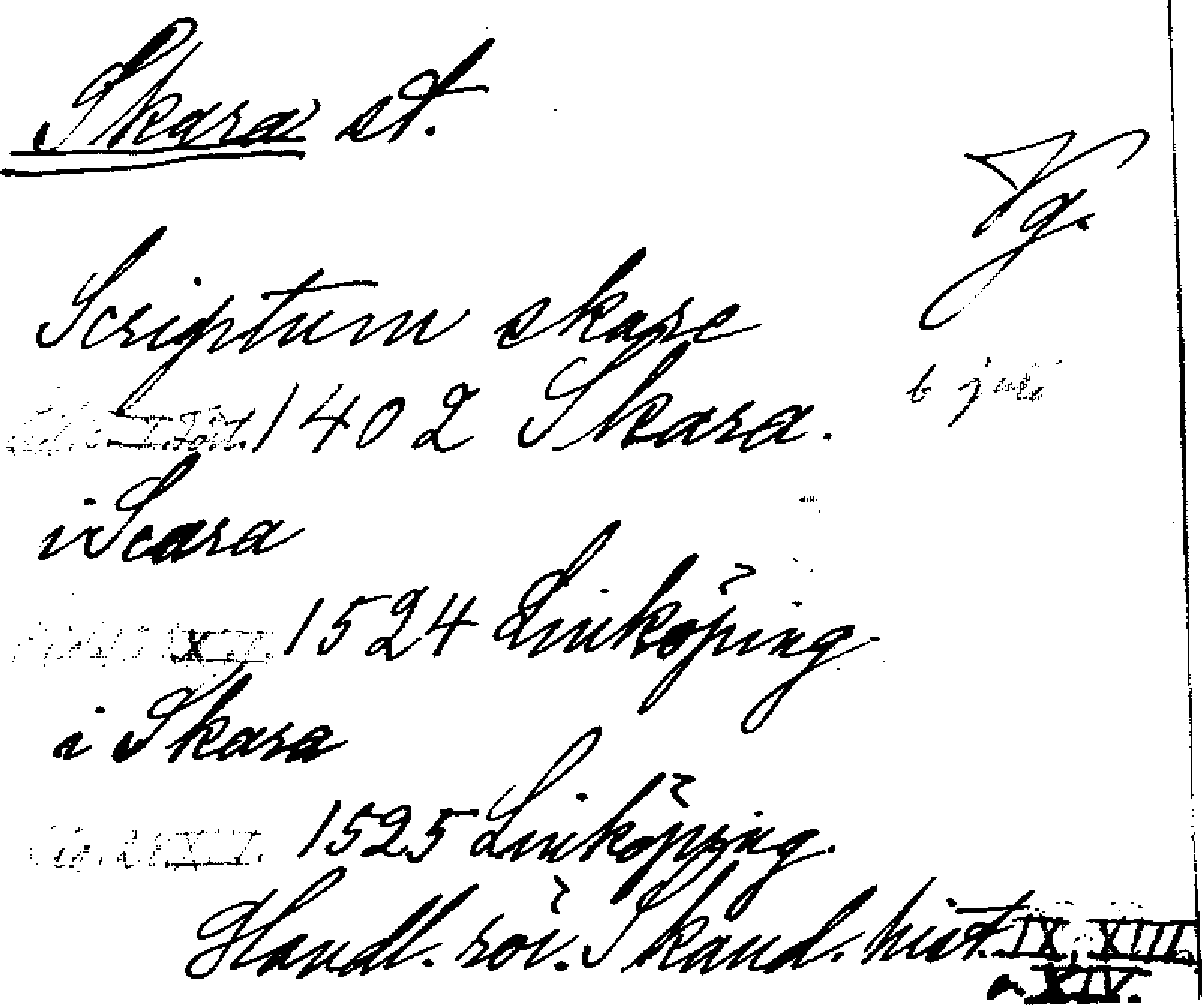 Skara st.
Vg.
Scriptum skare
1402 Skara. 6 juli
i Scara
1524 Linköping
i Skara
1525 Linköping.
Handl. rör. Skand. hist. IX, XIII.
o. XIV.